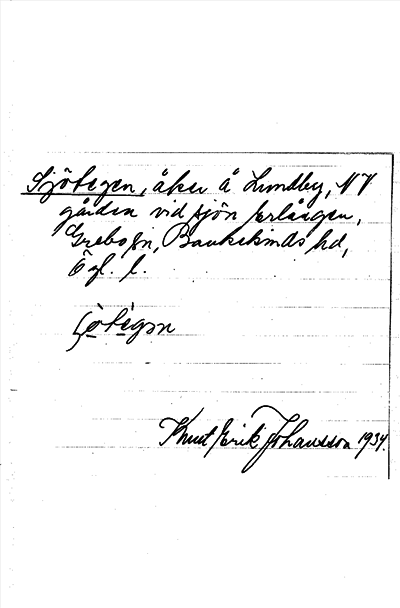 Sjötegen, åker å Lundby, NV
gården vid sjön Erlången,
Grebo sn, Bankekinds hd,
Ögl. l.
Knut Erik Johansson 1934.